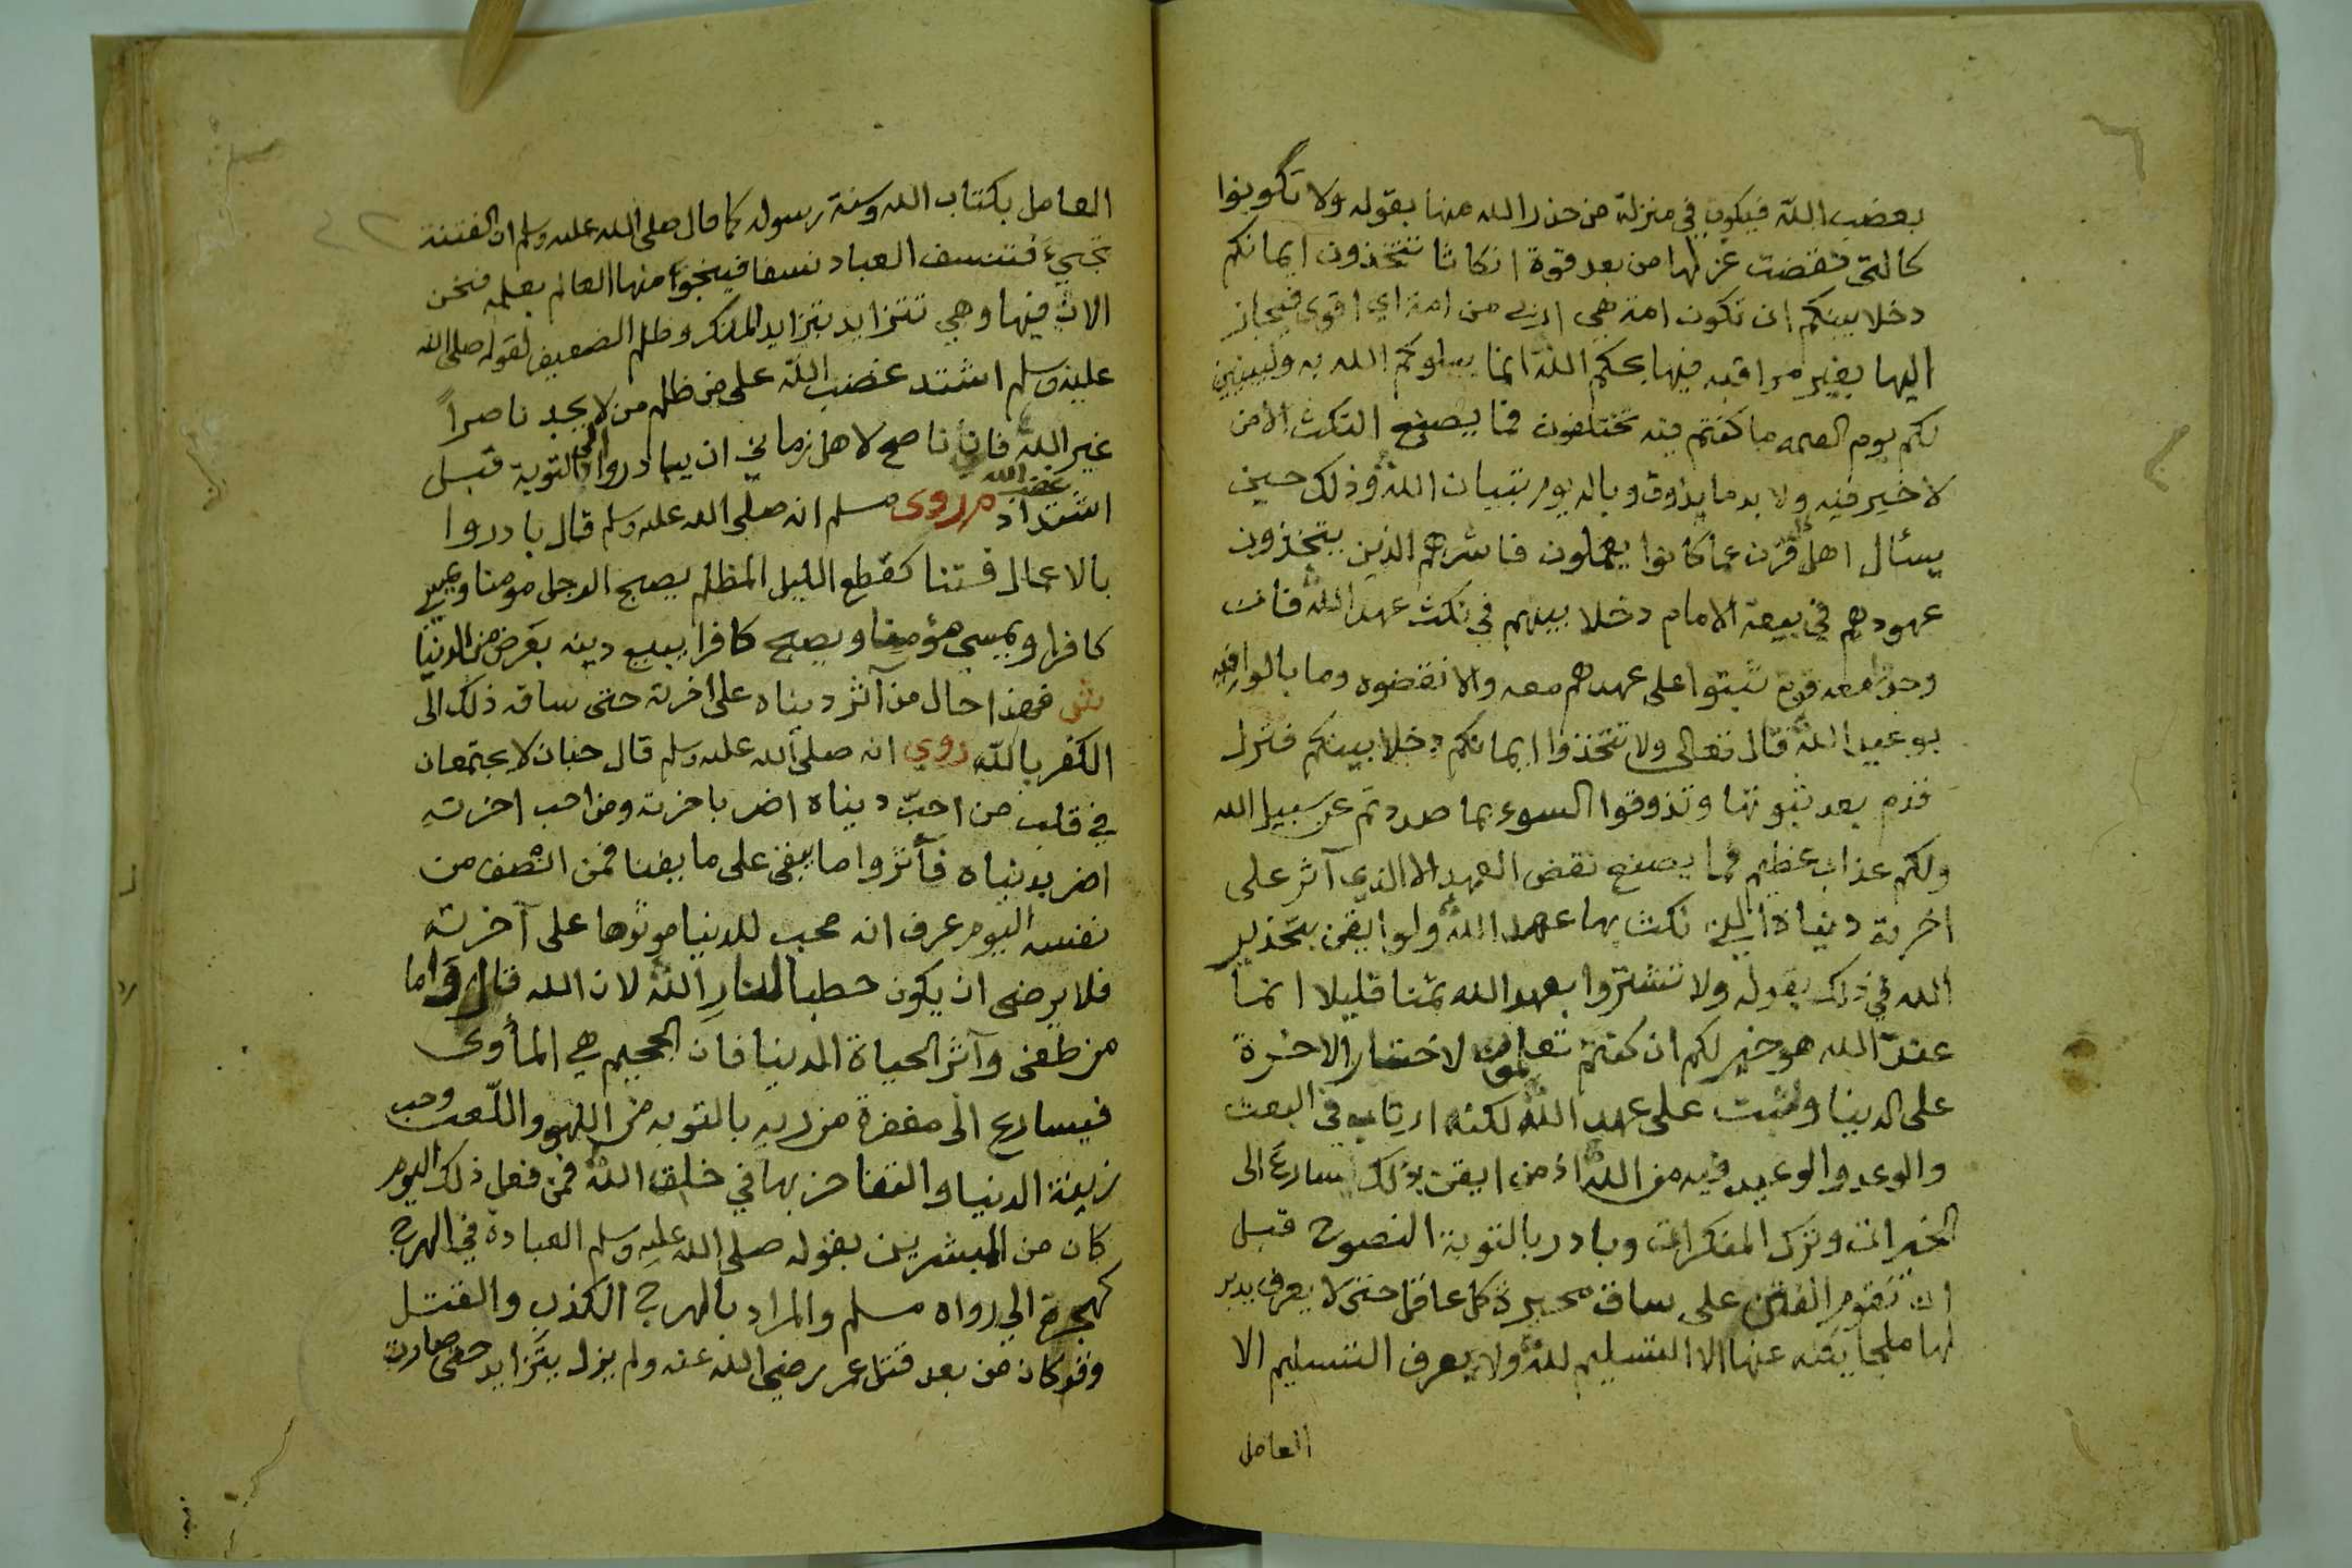 بغضب الله فيكون في منزلة من حذر الله منها بقوله ولا تكونوا
كالتي نقضت غزلها من بعد قوة انكاثا تتخذون ايمانكم
دخلا بينكم ان تكون امة هي اربى من امة اي اقوى فيجاز
اليها بغير مراقبه فيها بحكم الله انما يبلوكم الله به وليبينن
لكم يوم القيمه ما كنتم فيه تختلفون فما يصنع النكث الا من
لا خير فيه ولا بد ما يذوق وباله يوم تبيان الله وذلك حين
يسئال اهل كل قرن عما كانوا يعملون فاشرهم الذين يتخذون
عهودهم في بيعة الامام دخلا بينهم في نكث عهد الله فان
وجد معه قوم ثبتوا على عهدهم معه والا نقضوه وما بالوا فيه
بوعيد الله قال تعالى ولا تتخذوا ايمانكم دخلا بينكم فتزل
قدم بعد ثبوتها وتذوقوا السوء بما صددتم عن سبيل الله
ولكم عذاب عظيم فما يصنع نقض العهد الا الذي آثر على
اخرته دنياه التي نكث بها عهد الله ولو ايقن بتحذير
الله في ذلك بقوله ولا تشتروا بعهد الله ثمنا قليلا انما
عند الله هو خير لكم ان كنتم تعلمون لاختار الاخرة
على الدنيا وثبت على عهد الله لكنه ارتاب في البعث
والوعد والوعيد فيه من الله اذ من ايقن بذلك سارع الى
الخيرات وترك المنكرات وبادر بالتوبة النصوح قبل
ان تقوم الفتن على ساق محيرة كل عاقل حتى لا يعرف يدبر
لها ملجا يكنه عنها الا التسليم لله ولا يعرف التسليم الا
العامل
العامل بكتاب الله وسنة رسوله كما قال صلى الله عليه وسلم ان الفتنة
تجيء فتنسف العباد نسفا فينجوا منها العالم بعلمه فنحن
الان فيها وهي تتزايد بتزايد المنكر وظلم الضعيف لقوله صلى الله
عليه وسلم اشتد غضب الله على من ظلم من لا يجد ناصراً
غير الله فانا ناصح لاهل زماني ان يبادروا الى التوبة قبل
اشتداد غضب الله م روى مسلم انه صلى الله عليه وسلم قال بادروا
بالاعمال فتنا كقطع الليل المظلم يصبح الرجل مومنا ويمسي
كافرا ويمسي مؤمنا ويصبح كافرا يبيع دينه بعرض من الدنيا
ش فهذا حال من آثر دنياه على اخرته حتى ساقه ذلك الى
الكفر بالله روي انه صلى الله عليه وسلم قال حبان لا يجتمعان
في قلب من احبّ دنياه اضر باخرته ومن احب اخرته
اضر بدنياه فآثروا ما يبقى على ما يفنا فمن انصف من
نفسه اليوم عرف انه محب للدنيا موثرها على آخرته
فلا يرضى ان يكون حطبا لنار الله لان الله قال واما
من طغى وآثر الحياة الدنيا فان الجحيم هي المأوى
فيسارع الى مغفرة من ربه بالتوبه من اللهو واللّعب وحب
زينة الدنيا والتفاخر بها في خلق الله فمن فعل ذلك اليوم
كان من المبشرين بقوله صلى الله عليه وسلم العبادة في الهرج
كهجرة الي رواه مسلم والمراد بالهرج الكذب والقتل
وقد كان من بعد قتل عمر رضي الله عنه ولم يزل يتزايد حتى صارت